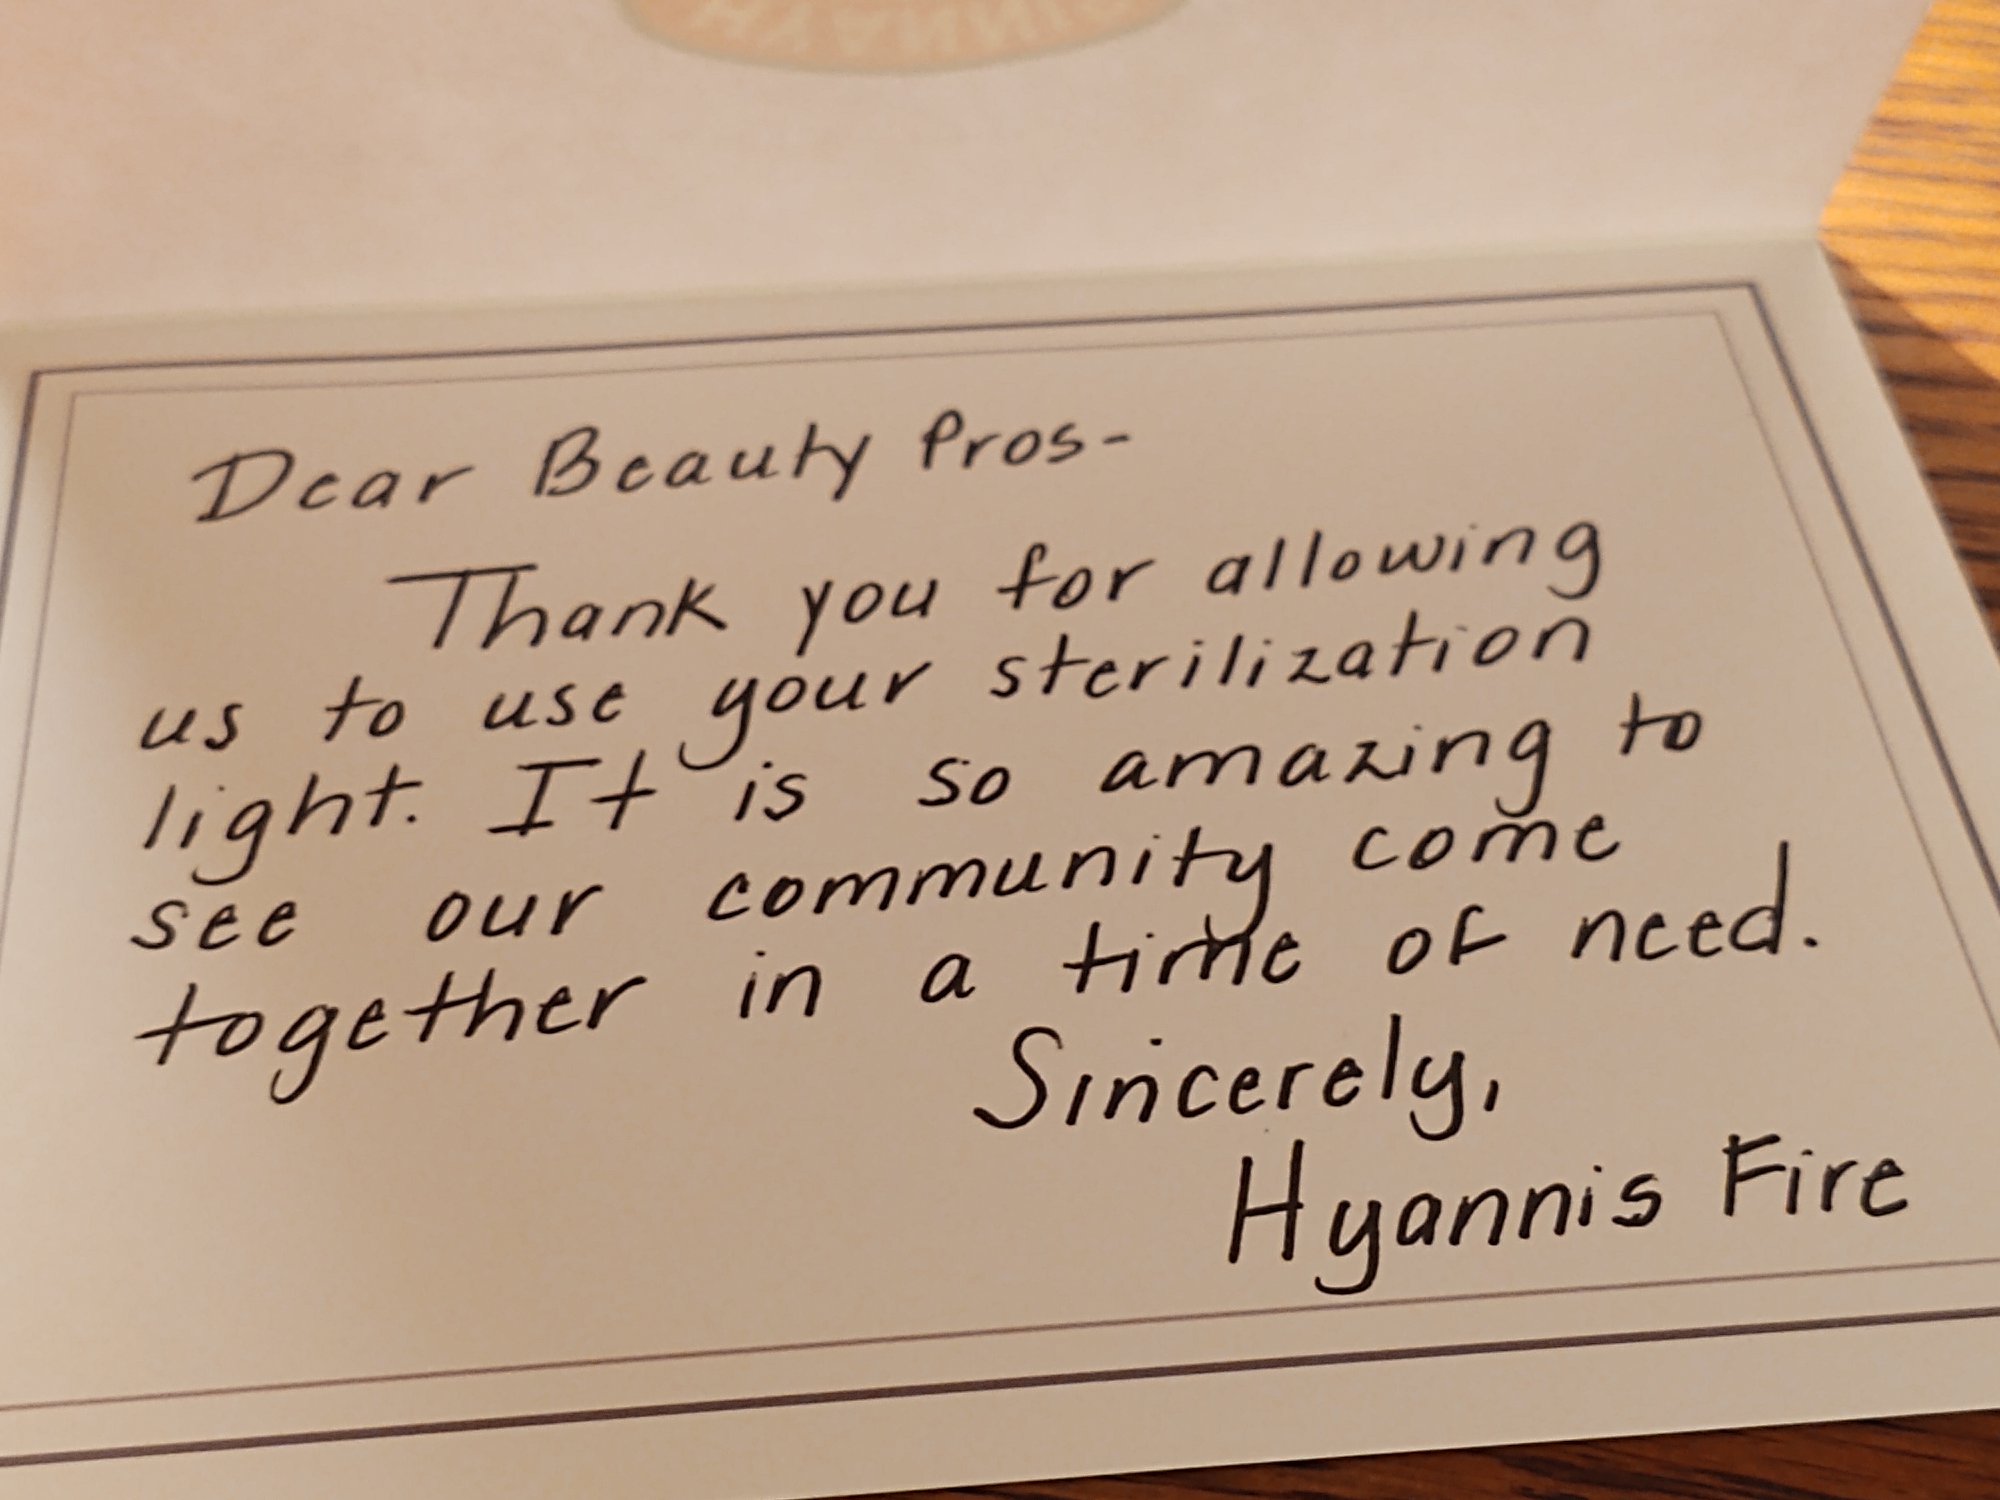 Dear Beauty Pros-
Thank you for allowing
us to use your sterilization
light. It is so amazing to
see our community come
together in a time of need.
Sincerely,
Hyannis Fire